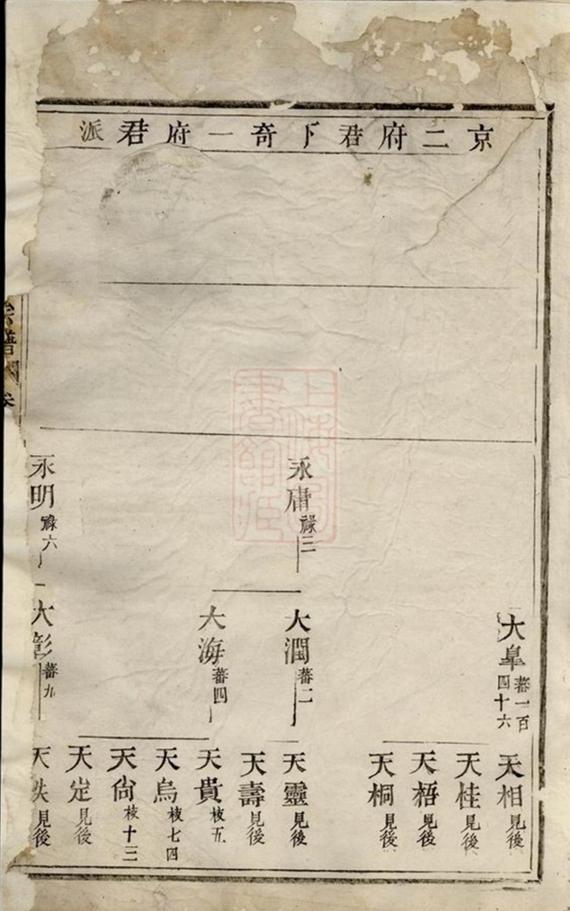 京二府君下奇一府君派
永庸祿三
永明祿六
大皐蕃一百四十六
大潤蕃二
大海蕃四
大彰蕃九
天相見後
天桂見後
天梧見後
天桐見後
天靈見後
天壽見後
天貴枝五
天烏枝七四
天尙枝十三
天定見後
天 見後
譜